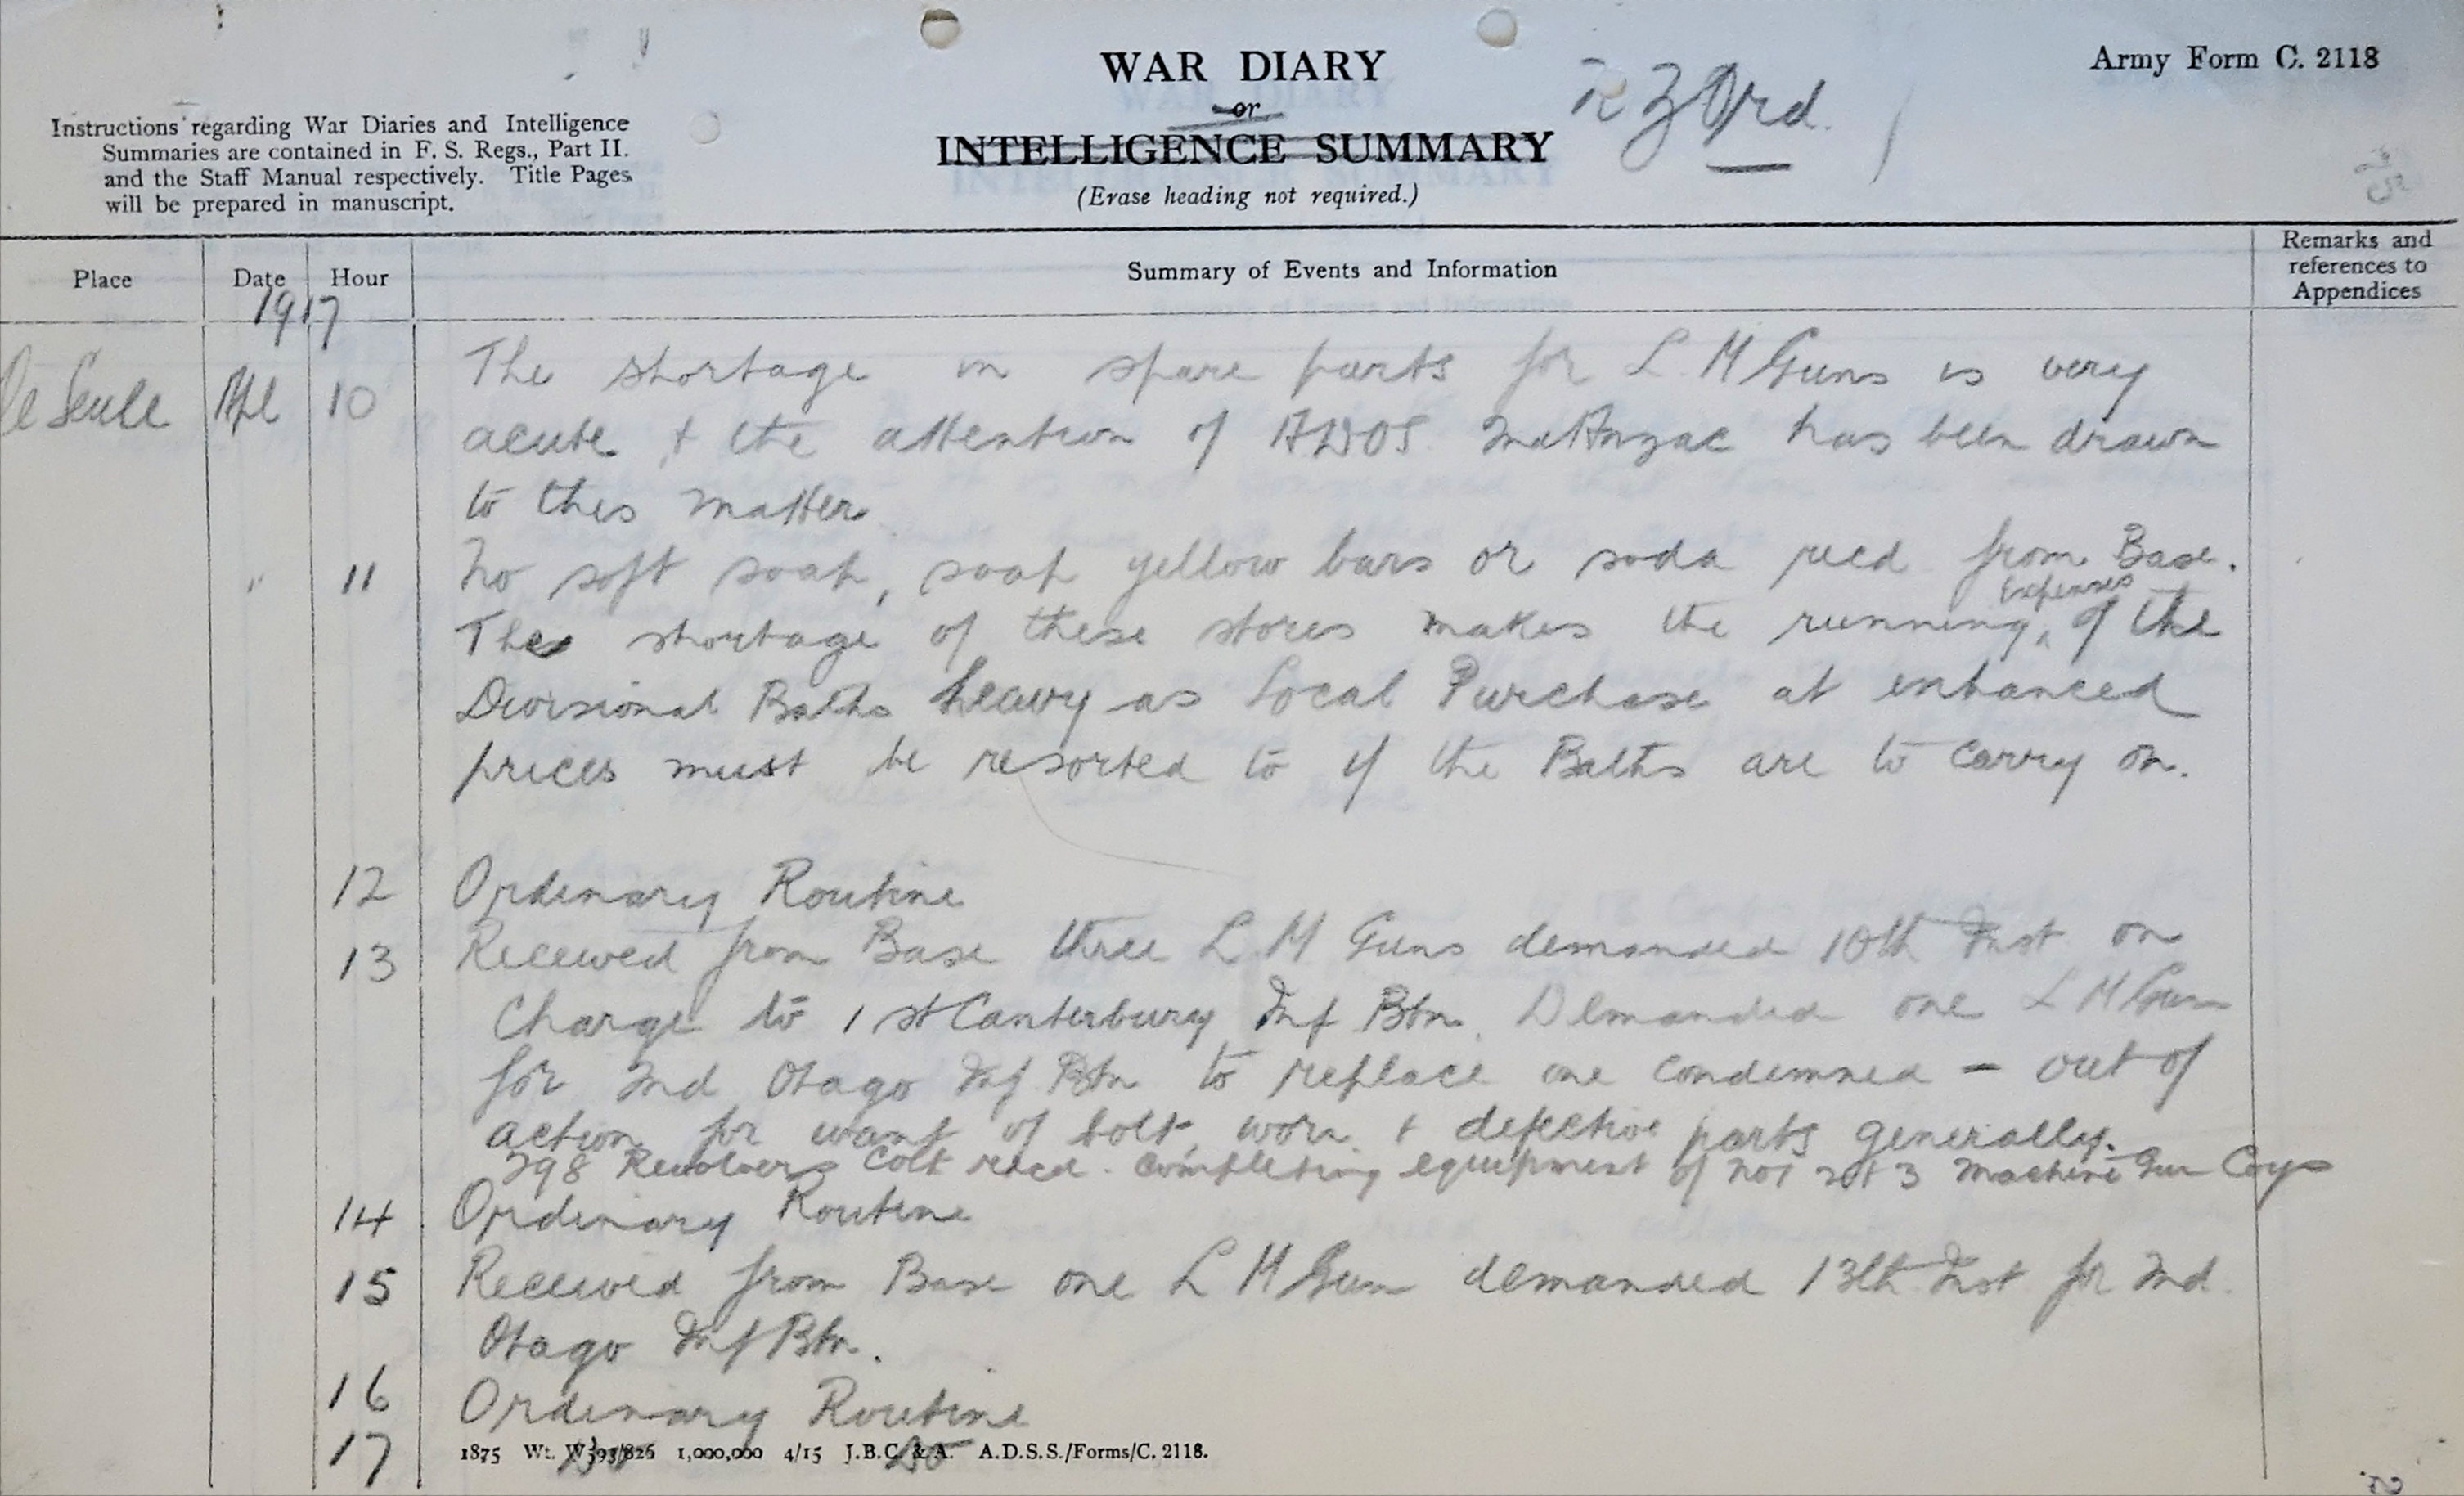 WAR DIARY
or
INTELLIGENCE SUMMARY
(Erase heading not required.)
N Z Ord.
Army Form C. 2118
Instructions regarding War Diaries and Intelligence
Summaries are contained in F. S. Regs., Part II.
and the Staff Manual respectively. Title Pages
will be prepared in manuscript.
Place
Date
Hour
Summary of Events and Information
Remarks and
references to
Appendices
1917
De Seule Apl 10 The shortage in spare parts for L. M Guns is very
acute & the attention of ADOS. 2nd Anzac has been drawn
to this matter
" 11 No soft soap, soap yellow bars or soda recd from Base.
The shortage of these stores makes the running Expenses of the
Divisional Baths heavy as Local Purchase at enhanced
prices must be resorted to if the Baths are to carry on.
12 Ordinary Routine
13 Received from Base three L. M Guns demanded 10th Inst on
Charge to 1st Canterbury Inf Btn. Demanded one L M Gun
for 2nd Otago Inf Btn to replace one condemned - out of
action for want of bolt, worn & defective parts generally.
298 Revolvers Colt recd. completing equipment of No 1 2 & 3 Machine Gun Coys
14 Ordinary Routine
15 Received from Base one L M Gun demanded 13th Inst for 2nd.
Otago Inf Btn.
16 Ordinary Routine
17 Do Do
1875 Wt. W593/826 1,000,000 4/15 J.B.C. & A. A.D.S.S./Forms/C. 2118.